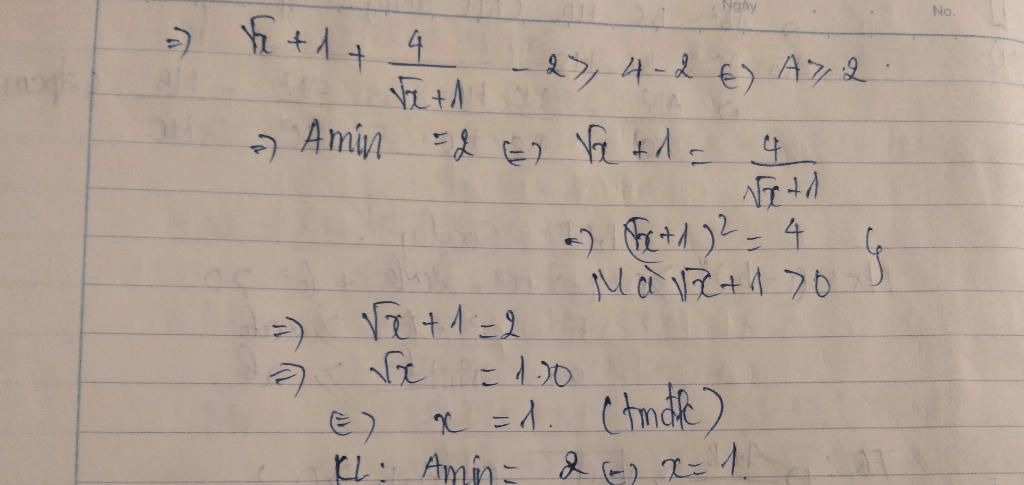 Ngày No.
=> √x + 1 + 4/(√x+1) - 2 ≥ 4 - 2 <=> A ≥ 2.
=> Amin = 2 <=> √x + 1 = 4/(√x+1)
=> (√x+1)² = 4
Mà √x + 1 > 0
=> √x + 1 = 2
=> √x = 1 > 0
<=> x = 1. (tmđk)
KL: Amin = 2 <=> x = 1.